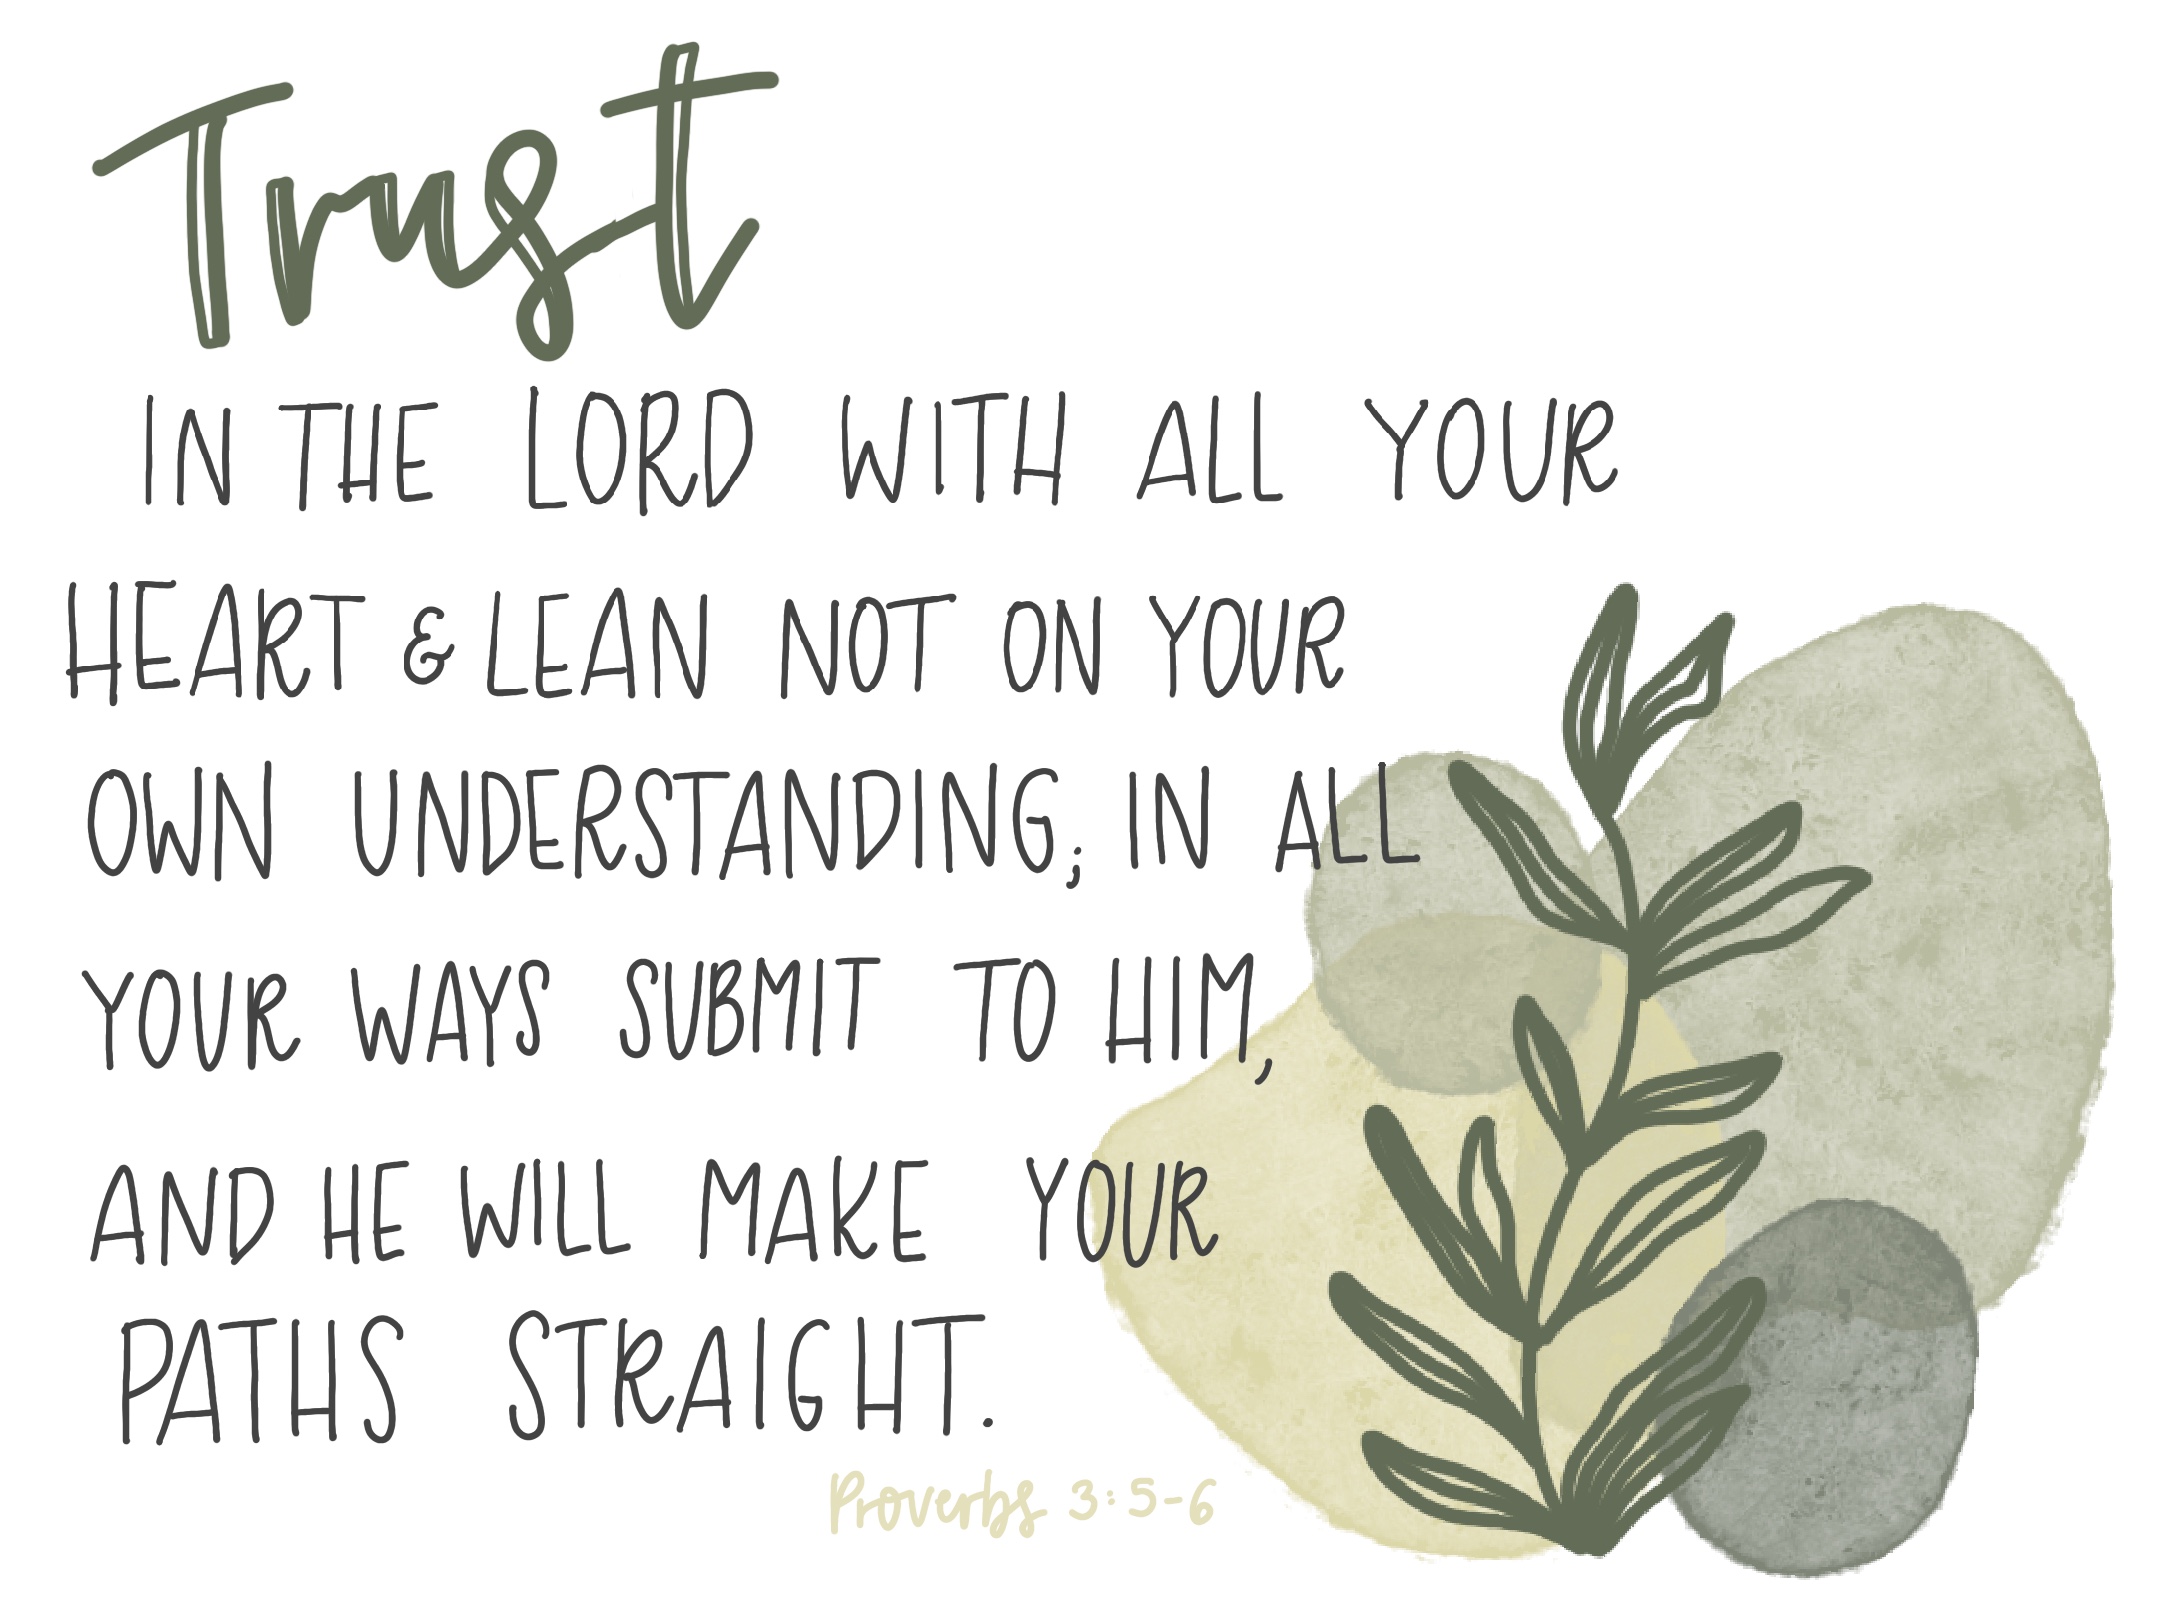 Trust
IN THE LORD WITH ALL YOUR
HEART & LEAN NOT ON YOUR
OWN UNDERSTANDING; IN ALL
YOUR WAYS SUBMIT TO HIM,
AND HE WILL MAKE YOUR
PATHS STRAIGHT.
Proverbs 3:5-6